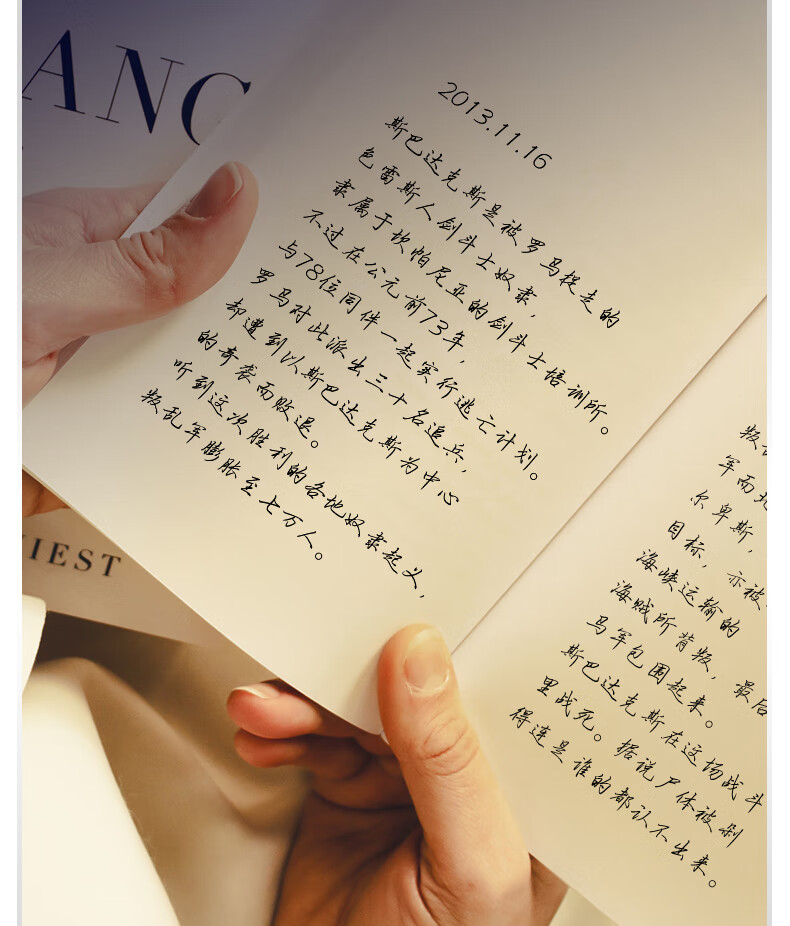 ANC
2013.11.16
斯巴达克斯是被罗马捉走的
色雷斯人剑斗士奴隶，
隶属于坎帕尼亚的剑斗士培训所。
不过在公元前73年，
与78位同伴一起实行逃亡计划。
罗马对此派出三十名追兵，
却遭到以斯巴达克斯为中心
的奇袭而败退。
听到这次胜利的各地奴隶起义，
叛乱军膨胀至七万人。
IEST
叛
军而
尔卑斯，
目标，亦被
海峡运输的
海贼所背叛，最后
马军包围起来。
斯巴达克斯在这场战斗
里战死。据说尸体被剁
得连是谁的都认不出来。